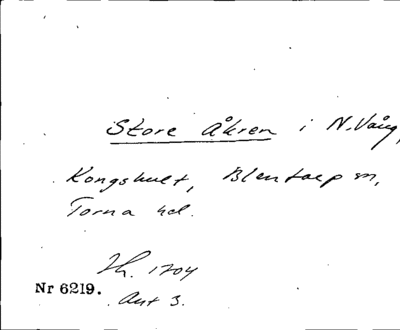 Store Åkren i N. Vång,
Kongshult, Blentarp sn,
Torna hd.
Lh. 1704
Nr 6219.
Akt 3.